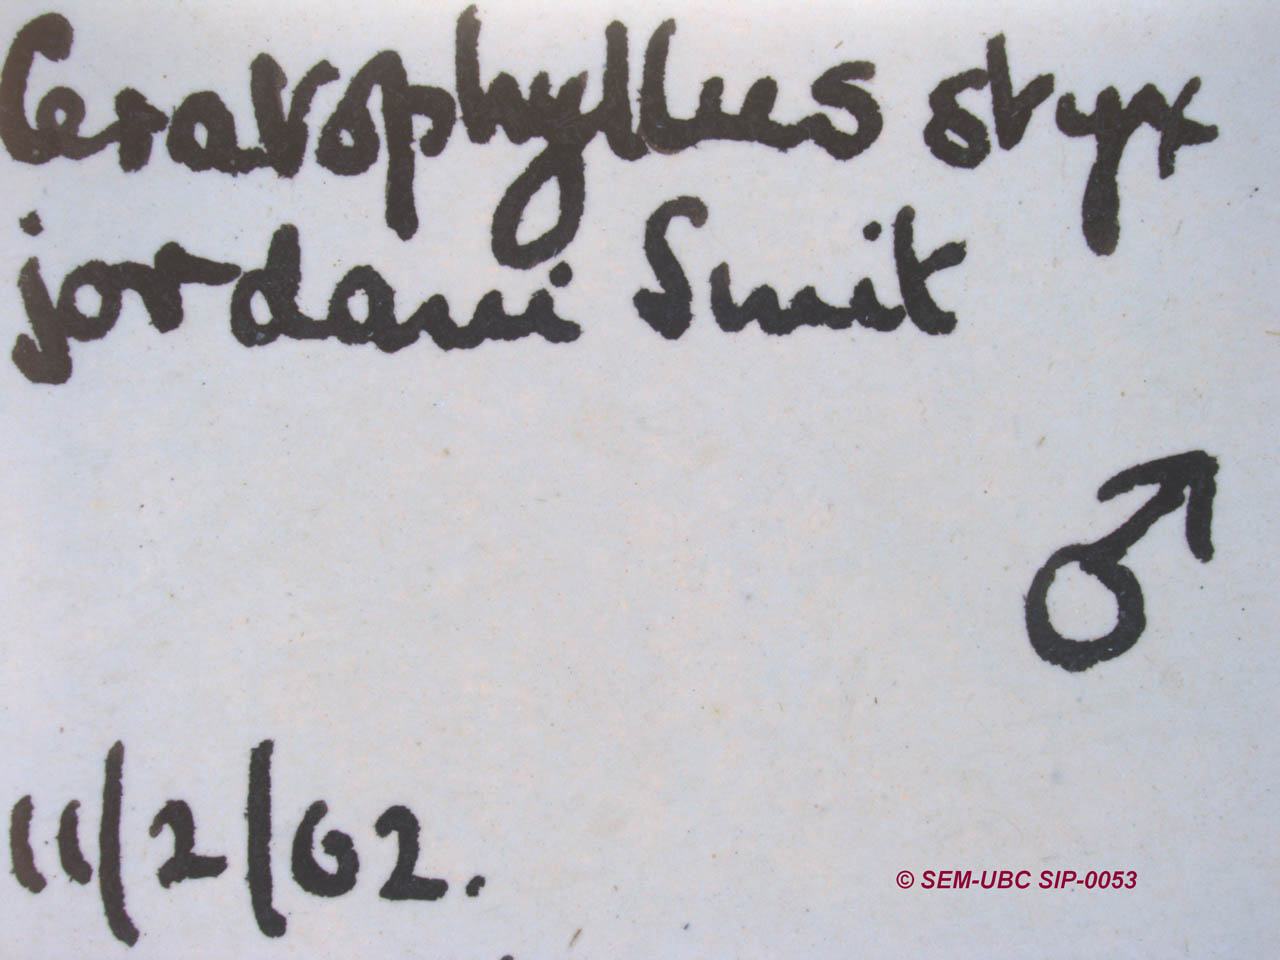 Ceratophyllus styx
jordani Smit
♂
11/2/62.
© SEM-UBC SIP-0053